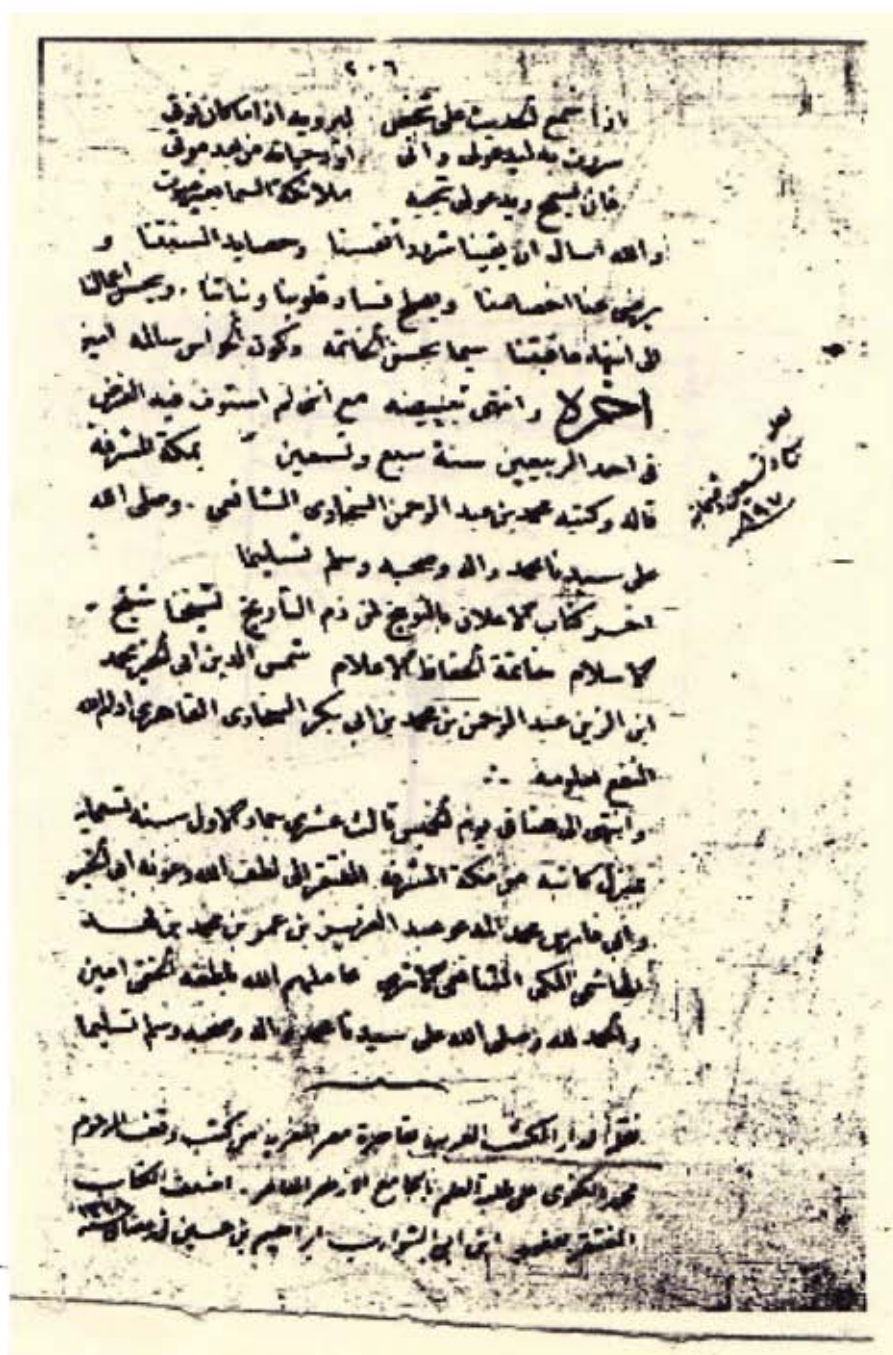 ٢٠٦
اذا سمع الحديث على شخص ليرويه اذا ما كان فوتى
سررت به ليدعولى وانى اود حياته من بعد موتى
فان يسمح ويدعولى تجبه ملائكة السما بغير صوت
والله اسال ان يقينا شرور انفسنا وحصايد السنتنا و
يرضى عنا اخصامنا ويصلح فساد قلوبنا ونياتنا . ويحسن اعمالنا
الى انتهاء عاقبتنا سيما بحسن الخاتمة وكون الحواس سالمه امين
اخره وانتهى تبييضه مع انى لم استوف فيه الغرض
فى احد الربيعين سنة سبع وتسعين بمكة المشرفة
قاله وكتبه محمد بن عبد الرحمن السخاوى الشافعى . وصلى الله
على سيدنا محمد واله وصحبه وسلم تسليما
اخر كتاب الاعلان بالتوبيخ لمن ذم التاريخ لشيخنا شيخ
الاسلام خاتمة الحفاظ الاعلام شمس الدين ابى الخير محمد
ابن الزين عبد الرحمن بن محمد بن ابى بكر السخاوى القاهرى ادام الله
النفع بعلومه
وانتهى الى هنا فى يوم الخميس ثالث عشرى جماد الاول سنة تسعماية
بمنزل كاتبه من مكة المشرفة المفتقر الى لطف الله وعونه ابى الخير
وابى فارس محمد المدعو عبد العزيز بن عمر بن محمد بن فهد
الهاشمى المكى الشافعى الاثرى عاملهم الله بلطفه الخفى امين
والحمد لله وصلى الله على سيدنا محمد واله وصحبه وسلم تسليما
دار الكتب بقاهرة مصر من كتب وقف المرحوم
على طلبة العلم بالجامع الازهر . الكتاب
ابراهيم بن حسين فى رمضان سنة
وثمانمائة
٨٩٧